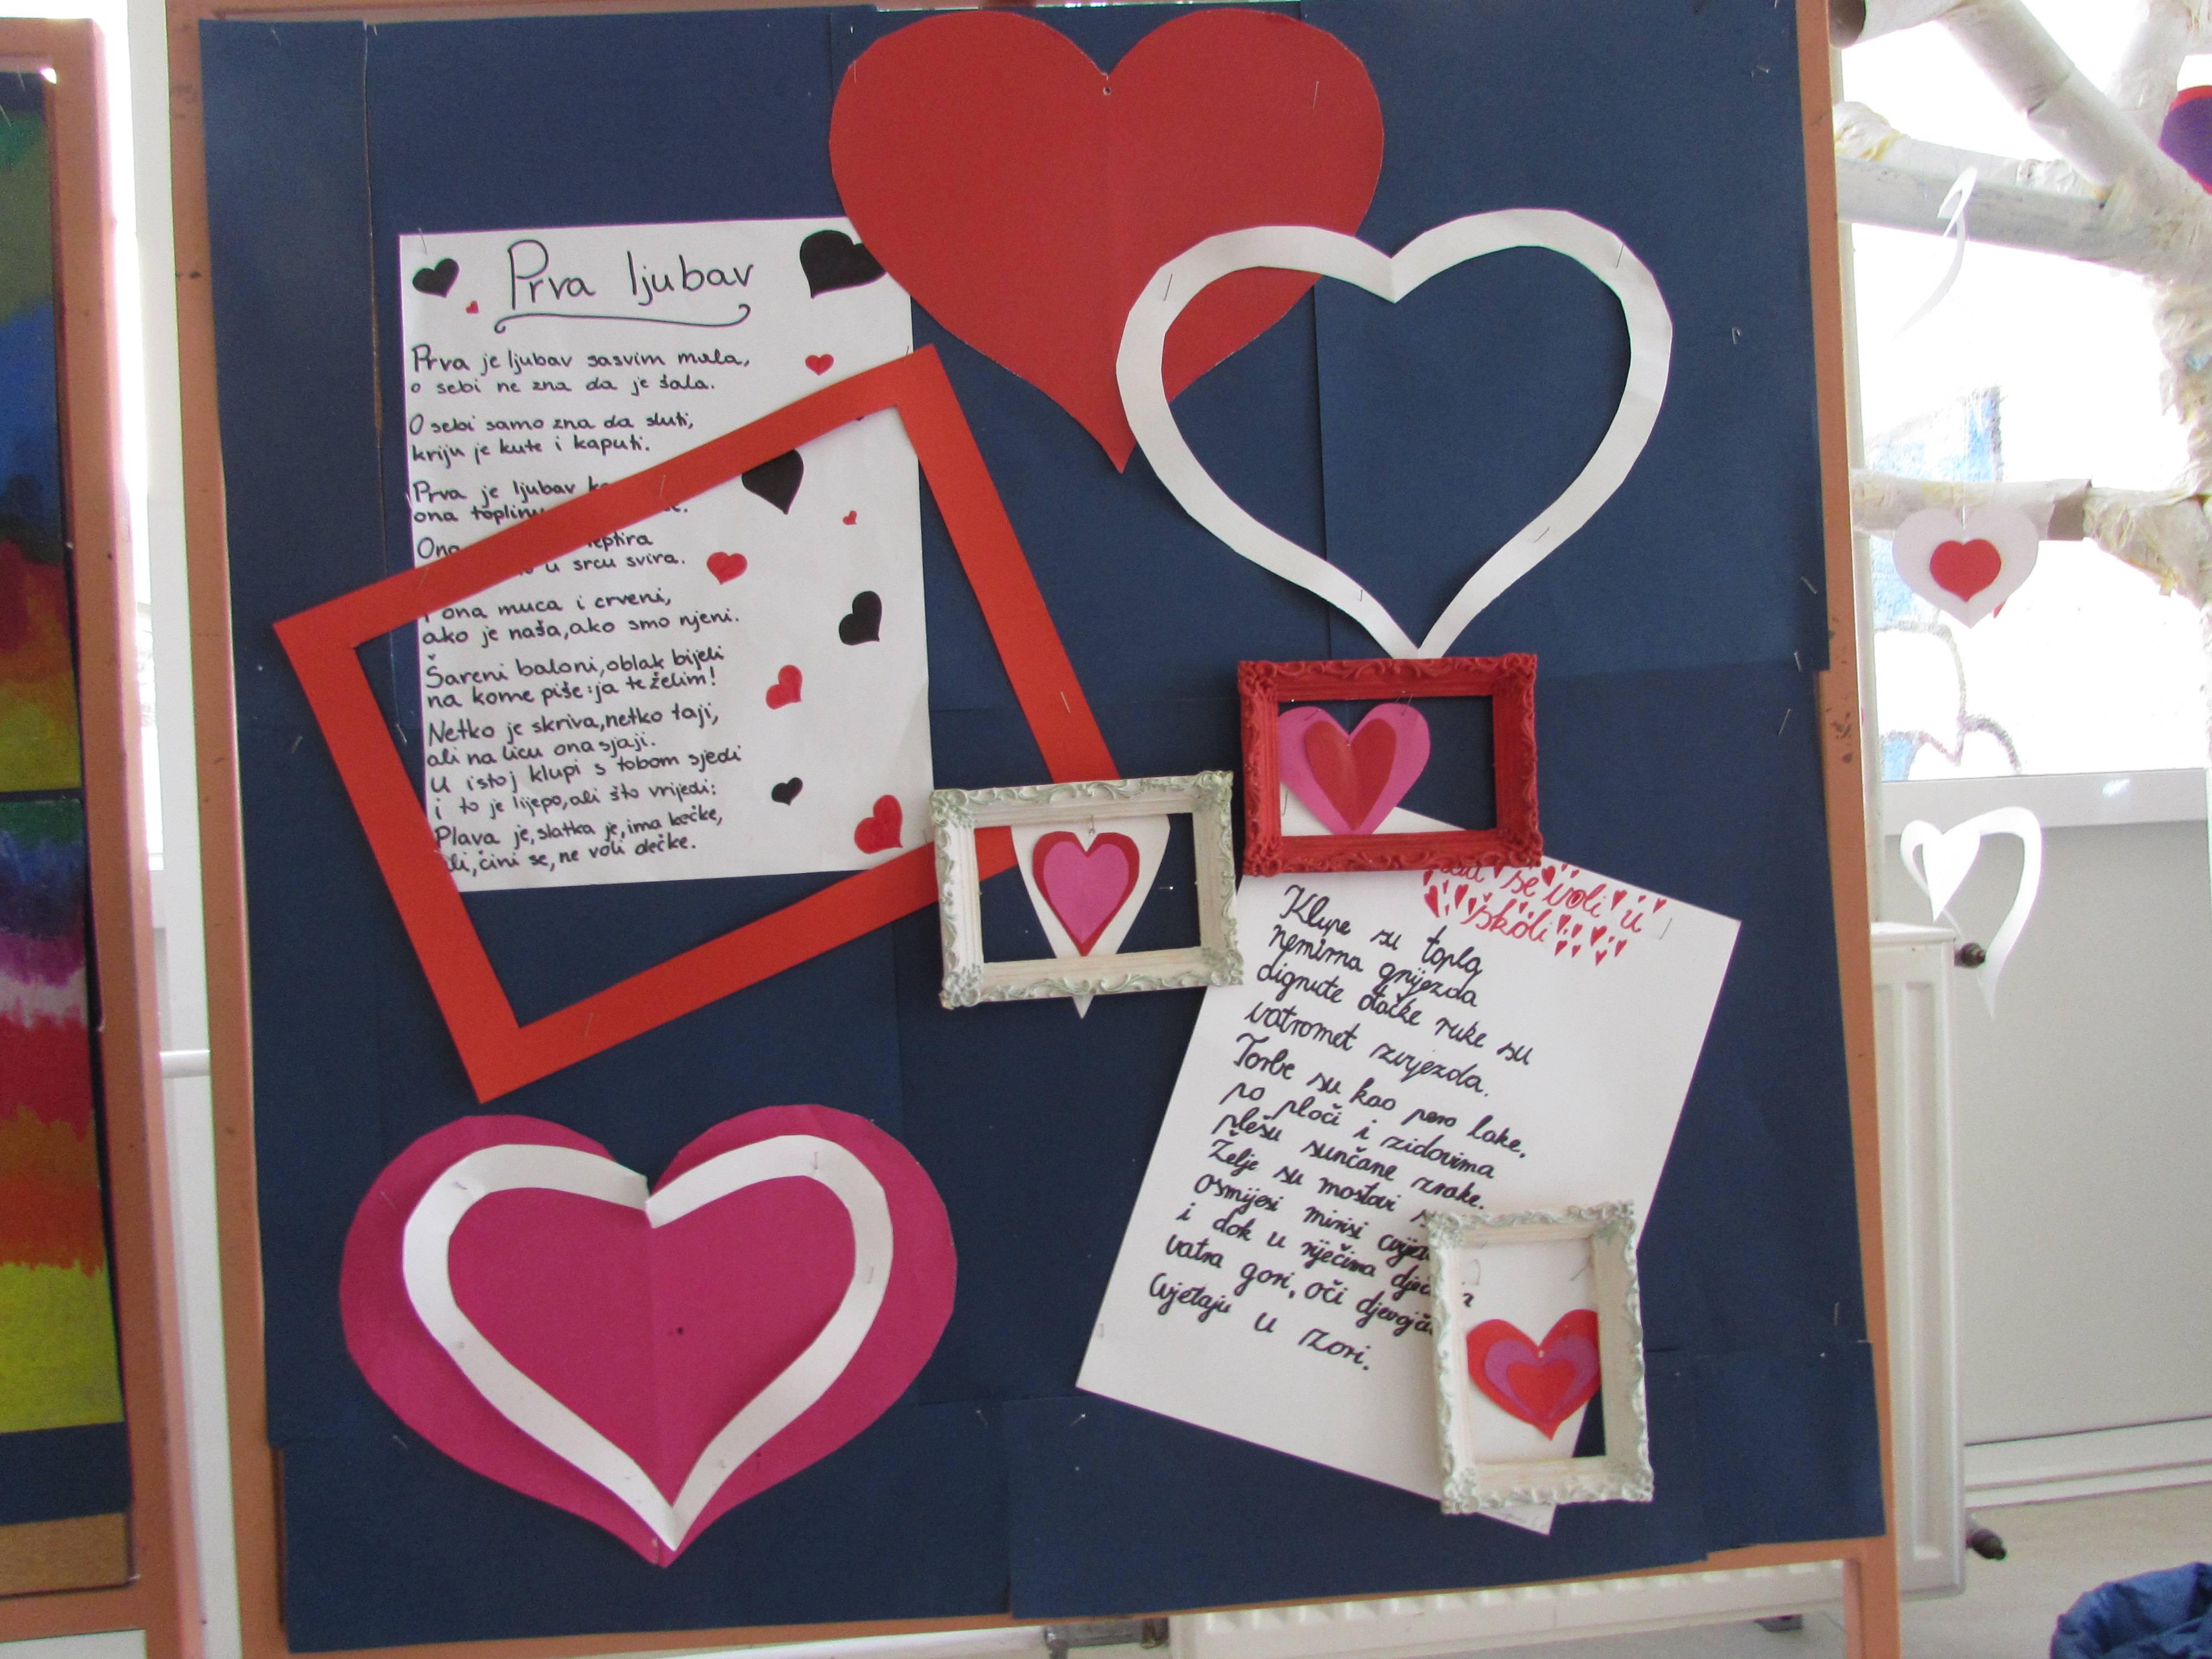 Prva ljubav
Prva je ljubav sasvim mala,
o sebi ne zna da je šala.
O sebi samo zna da sluti,
kriju je kute i kaputi.
Prva je ljubav
ona toplinu
Ona leptira
u srcu svira.
I ona muca i crveni,
ako je naša, ako smo njeni.
Šareni baloni, oblak bijeli
na kome piše: ja te želim!
Netko je skriva, netko taji,
ali na licu ona sjaji.
U istoj klupi s tobom sjedi
i to je lijepo, ali što vrijedi:
Plava je, slatka je, ima kečke,
ali, čini se, ne voli dečke.
se voli u
školi
Klupe su topla
nemirna gnijezda
dignute đačke ruke su
vatromet zvijezda.
Torbe su kao pero lake,
po ploči i zidovima
plešu sunčane zrake.
Želje su mostovi
Osmijesi mirisi
i dok u riječima
vatra gori, oči
Cvjetaju u zori.